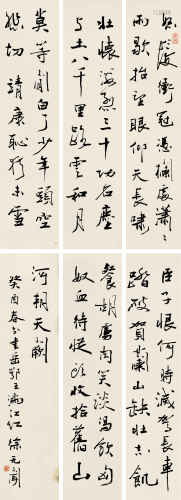 怒髮衝冠憑欄處瀟瀟
雨歇抬望眼仰天長嘯
壯懷激烈三十功名塵
与土八千里路雲和月
莫等閒白了少年頭空
悲切靖康恥猶未雪
臣子恨何時滅駕長車
踏破賀蘭山缺壯志飢
餐胡虜肉笑談渴飲匈
奴血待從頭收拾舊山
河朝天闕
癸酉春分書岳鄂王滿江紅 徐元